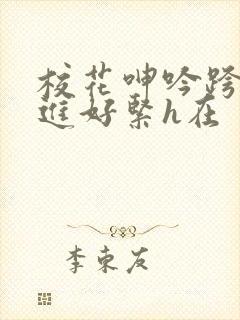 校花呻吟跨
进好紧h在
李东友